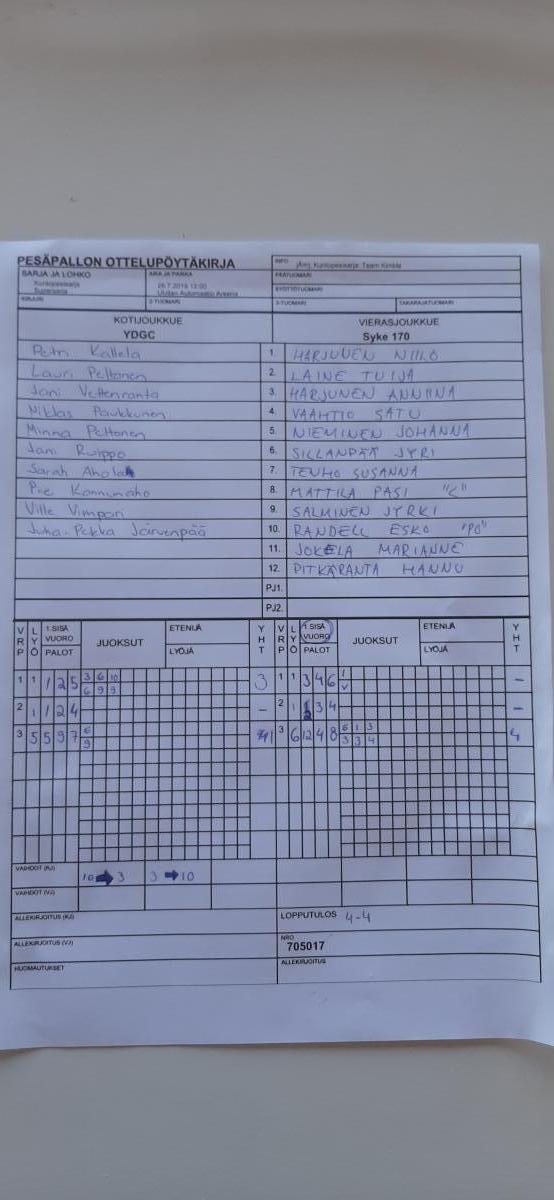 PESÄPALLON OTTELUPÖYTÄKIRJA
INFO Kuntopesisarja: Team Kimble
SARJA JA LOHKO
Kuntopesisarja
Supersarja
AIKA JA PAIKKA
28.7.2019 13:00
Ulvilan Automaatio Areena
PÄÄTUOMARI
SYÖTTÖTUOMARI
KIRJURI 2-TUOMARI 3-TUOMARI TAKARAJATUOMARI
KOTIJOUKKUE VIERASJOUKKUE
YDGC Syke 170
Petri Kallela 1. HARJUNEN NIILO
Lauri Peltonen 2. LAINE TUIJA
Jani Vettenranta 3. HARJUNEN ANNIINA
Niklas Paukkunen 4. VAAHTIO SATU
Minna Peltonen 5. NIEMINEN JOHANNA
Jani Ruippo 6. SILLANPÄÄ JYRI
Sarah Ahola 7. TENHO SUSANNA
Pie Konnunaho 8. MATTILA PASI "C"
Ville Vimpari 9. SALMINEN JYRKI
Juha-Pekka Järvenpää 10. RANDELL ESKO "PO"
11. JOKELA MARIANNE
12. PITKÄRANTA HANNU
PJ1.
PJ2.
VRP LYÖ 1.SISÄ VUORO PALOT JUOKSUT ETENIJÄ LYÖJÄ YHT VRP LYÖ 1.SISÄ VUORO PALOT JUOKSUT ETENIJÄ LYÖJÄ YHT
1 1 1 2 5 3 6 10 3 1 1 3 4 6 1 -
6 9 9 V
2 1 1 2 4 - 2 1 3 4 -
3 5 5 9 7 6 1 3 6 12 4 8 6 1 3 4
9 3 3 4
VAIHDOT (KJ) 10 → 3 3 → 10
VAIHDOT (VJ)
ALLEKIRJOITUS (KJ) LOPPUTULOS 4-4
ALLEKIRJOITUS (VJ) NRO
705017
HUOMAUTUKSET ALLEKIRJOITUS